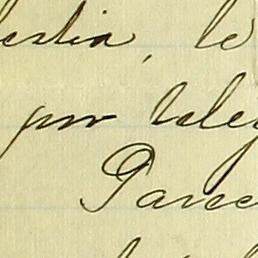 lestia, le
por teleg
Parec